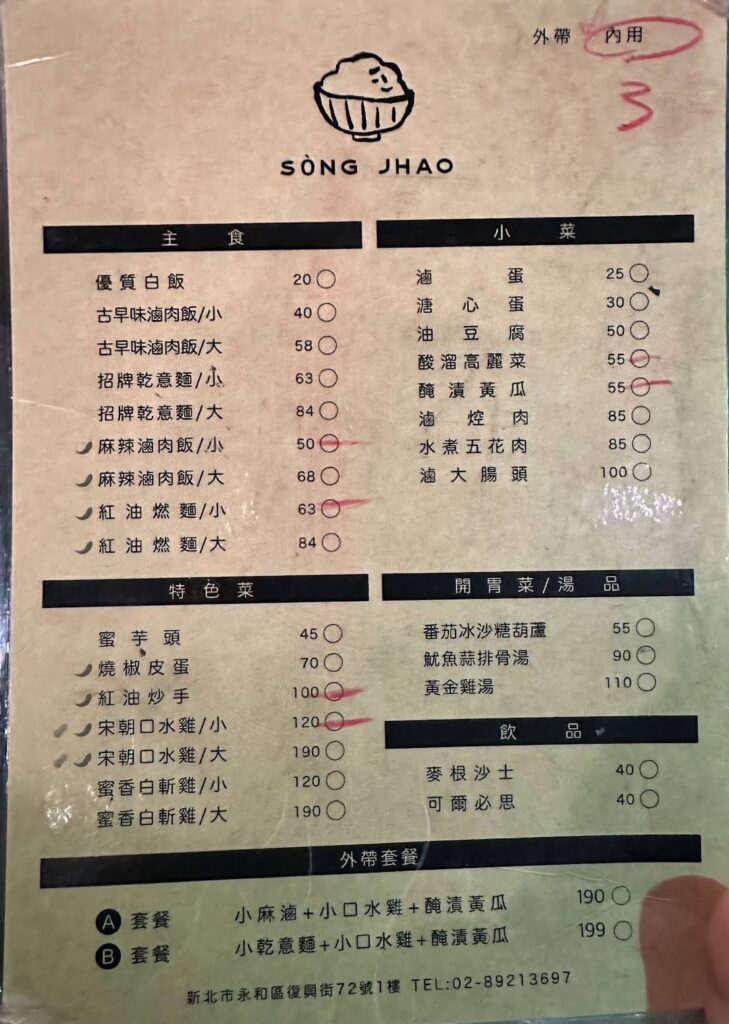 外帶 內用
3
SÒNG JHAO
主食
優質白飯 20
古早味滷肉飯/小 40
古早味滷肉飯/大 58
招牌乾意麵/小 63
招牌乾意麵/大 84
麻辣滷肉飯/小 50
麻辣滷肉飯/大 68
紅油燃麵/小 63
紅油燃麵/大 84
小菜
滷蛋 25
溏心蛋 30
油豆腐 50
酸溜高麗菜 55
醃漬黃瓜 55
滷焢肉 85
水煮五花肉 85
滷大腸頭 100
特色菜
蜜芋頭 45
燒椒皮蛋 70
紅油炒手 100
宋朝口水雞/小 120
宋朝口水雞/大 190
蜜香白斬雞/小 120
蜜香白斬雞/大 190
開胃菜/湯品
番茄冰沙糖葫蘆 55
魷魚蒜排骨湯 90
黃金雞湯 110
飲品
麥根沙士 40
可爾必思 40
外帶套餐
A 套餐 小麻滷+小口水雞+醃漬黃瓜 190
B 套餐 小乾意麵+小口水雞+醃漬黃瓜 199
新北市永和區復興街72號1樓 TEL:02-89213697